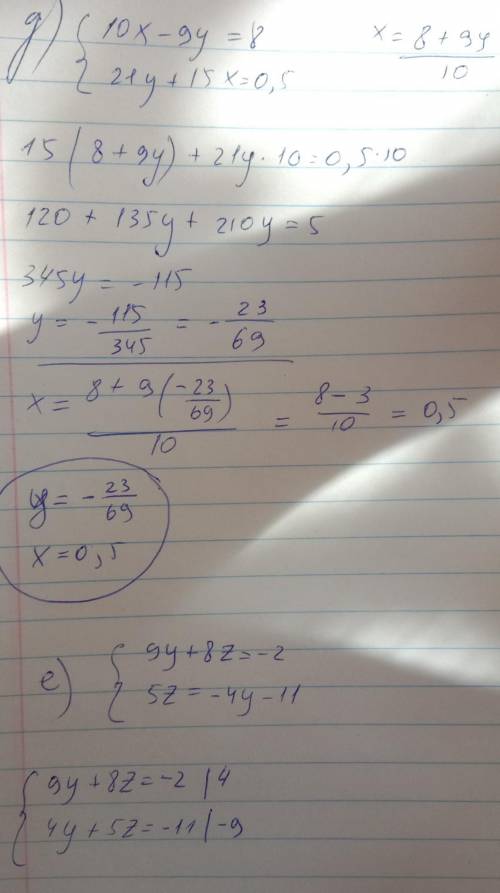 д) { 10x - 9y = 8    x = (8 + 9y)/10
{ 21y + 15x = 0,5
15(8 + 9y) + 21y · 10 = 0,5 · 10
120 + 135y + 210y = 5
345y = -115
y = - 115/345 = - 23/69
x = (8 + 9(-23/69))/10 = (8 - 3)/10 = 0,5
y = - 23/69
x = 0,5
е) { 9y + 8z = -2
{ 5z = -4y - 11
{ 9y + 8z = -2 | 4
{ 4y + 5z = -11 | -9